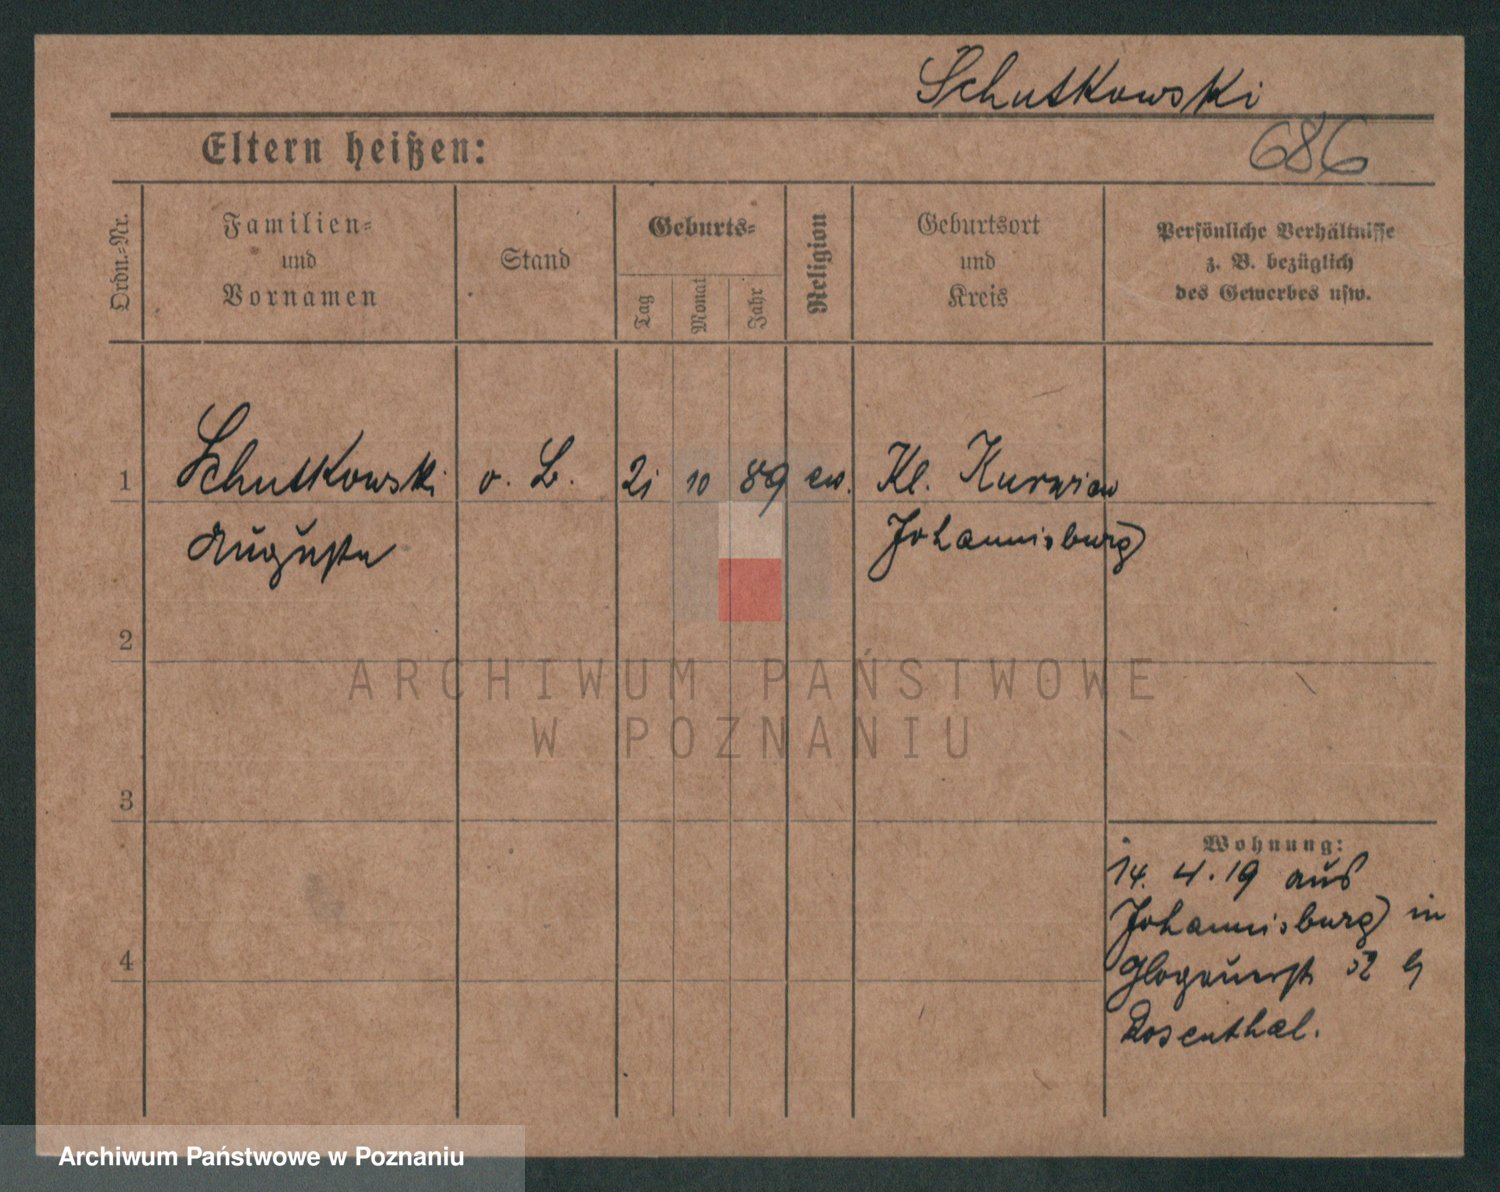 Schutkowski
686
Eltern heißen:
Ordn.-Nr.
Familien-
und
Vornamen
Stand
Geburts-
Tag
Monat
Jahr
Religion
Geburtsort
und
Kreis
Persönliche Verhältnisse
z. B. bezüglich
des Gewerbes usw.
1
Schutkowski o. B. 21 10 89 ev. Kl. Kurwien
Auguste Johannisburg
2
ARCHIWUM PAŃSTWOWE
W POZNANIU
3
Wohnung:
14. 4. 19 aus
Johannisburg in
Glogauerstr 52 b/
Rosenthal.
4
Archiwum Państwowe w Poznaniu